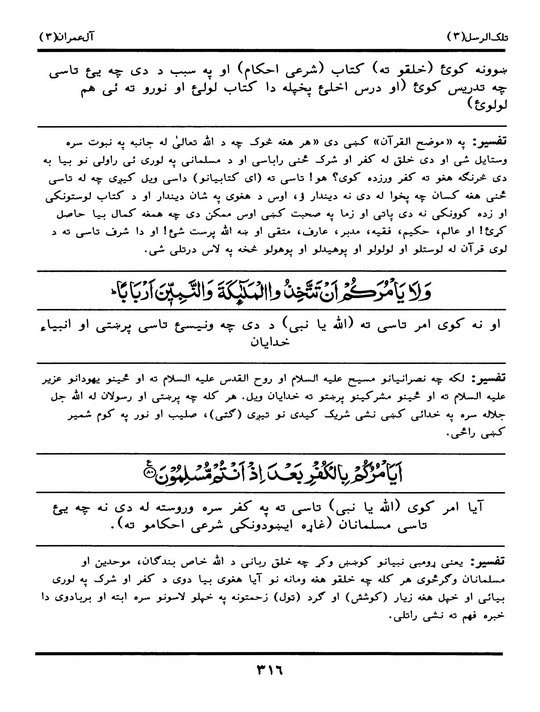 تلک الرسل (٣)
آل عمران (٣)
ښوونه کوئ (خلقو ته) کتاب (شرعي احکام) او په سبب د دې چه یئ تاسی
چه تدریس کوئ (او درس اخلئ پخپله دا کتاب لولئ او نورو ته ئې هم
لولوئ)
تفسیر: په «موضح القرآن» کښی دی «هر هغه څوک چه د الله تعالیٰ له جانبه په نبوت سره
وستایل شی او دی خلق له کفر او شرک ځنی راباسی او د مسلمانی په لوری ئی راولی نو بیا به
دی څرنګه هغو ته کفر ورزده کوی؟ هو! تاسی ته (ای کتابیانو) داسی ویل کیږی چه له تاسی
ځنی هغه کسان چه پخوا له دی نه دیندار ؤ، اوس د هغوی په شان دیندار او د کتاب لوستونکی
او زده کوونکی نه دی پاتی او زما په صحبت کښی اوس ممکن دی چه همغه کمال بیا حاصل
کړئ! او عالم، حکیم، فقیه، مدبر، عارف، متقی او ښه الله پرست شئ! او دا شرف تاسی ته د
لوی قرآن له لوستلو او لولولو او پوهیدلو او پوهولو څخه په لاس درتلی شی.
وَلَا يَأْمُرَكُمْ اَنْ تَتَّخِذُوا الْمَلٰٓئِكَةَ وَالنَّبِيّٖنَ اَرْبَابًا ؕ
او نه کوی امر تاسی ته (الله یا نبی) د دی چه ونیسئ تاسی پرښتی او انبیاء
خدایان
تفسیر: لکه چه نصرانیانو مسیح علیه السلام او روح القدس علیه السلام ته او ځینو یهودانو عزیر
علیه السلام ته او ځینو مشرکینو پرښتو ته خدایان ویل. هر کله چه پرښتی او رسولان له الله جل
جلاله سره په خدائی کښی نشی شریک کیدی نو تیږی (ګټی)، صلیب او نور په کوم شمیر
کښی راځی.
اَيَاْمُرُكُمْ بِالْكُفْرِ بَعْدَ اِذْ اَنْتُمْ مُّسْلِمُوْنَ ﴿۸۰﴾ ع
آیا امر کوی (الله یا نبی) تاسی ته په کفر سره وروسته له دی نه چه یئ
تاسی مسلمانان (غاړه ایښودونکی شرعی احکامو ته).
تفسیر: یعنی ړومبی نبیانو کوښښ وکړ چه خلق ربانی د الله خاص بندګان، موحدین او
مسلمانان وګرځوی هر کله چه خلقو هغه ومانه نو آیا هغوی بیا دوی د کفر او شرک په لوری
بیائی او خپل هغه زیار (کوشش) او ګرد (ټول) زحمتونه په خپلو لاسونو سره ابته او بربادوی دا
خبره فهم ته نشی راتلی.
٣١٦